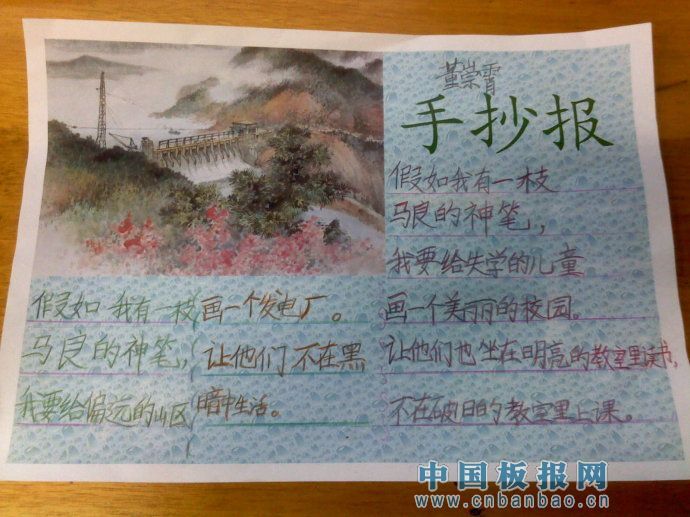 董崇霄
手抄报
假如我有一枝
马良的神笔，
我要给失学的儿童
画一个美丽的校园。
让他们也坐在明亮的教室里读书，
不在破旧的教室里上课。
假如我有一枝
马良的神笔，
我要给偏远的山区
画一个发电厂。
让他们不在黑
暗中生活。
中国板报网
www.cnbanbao.cn